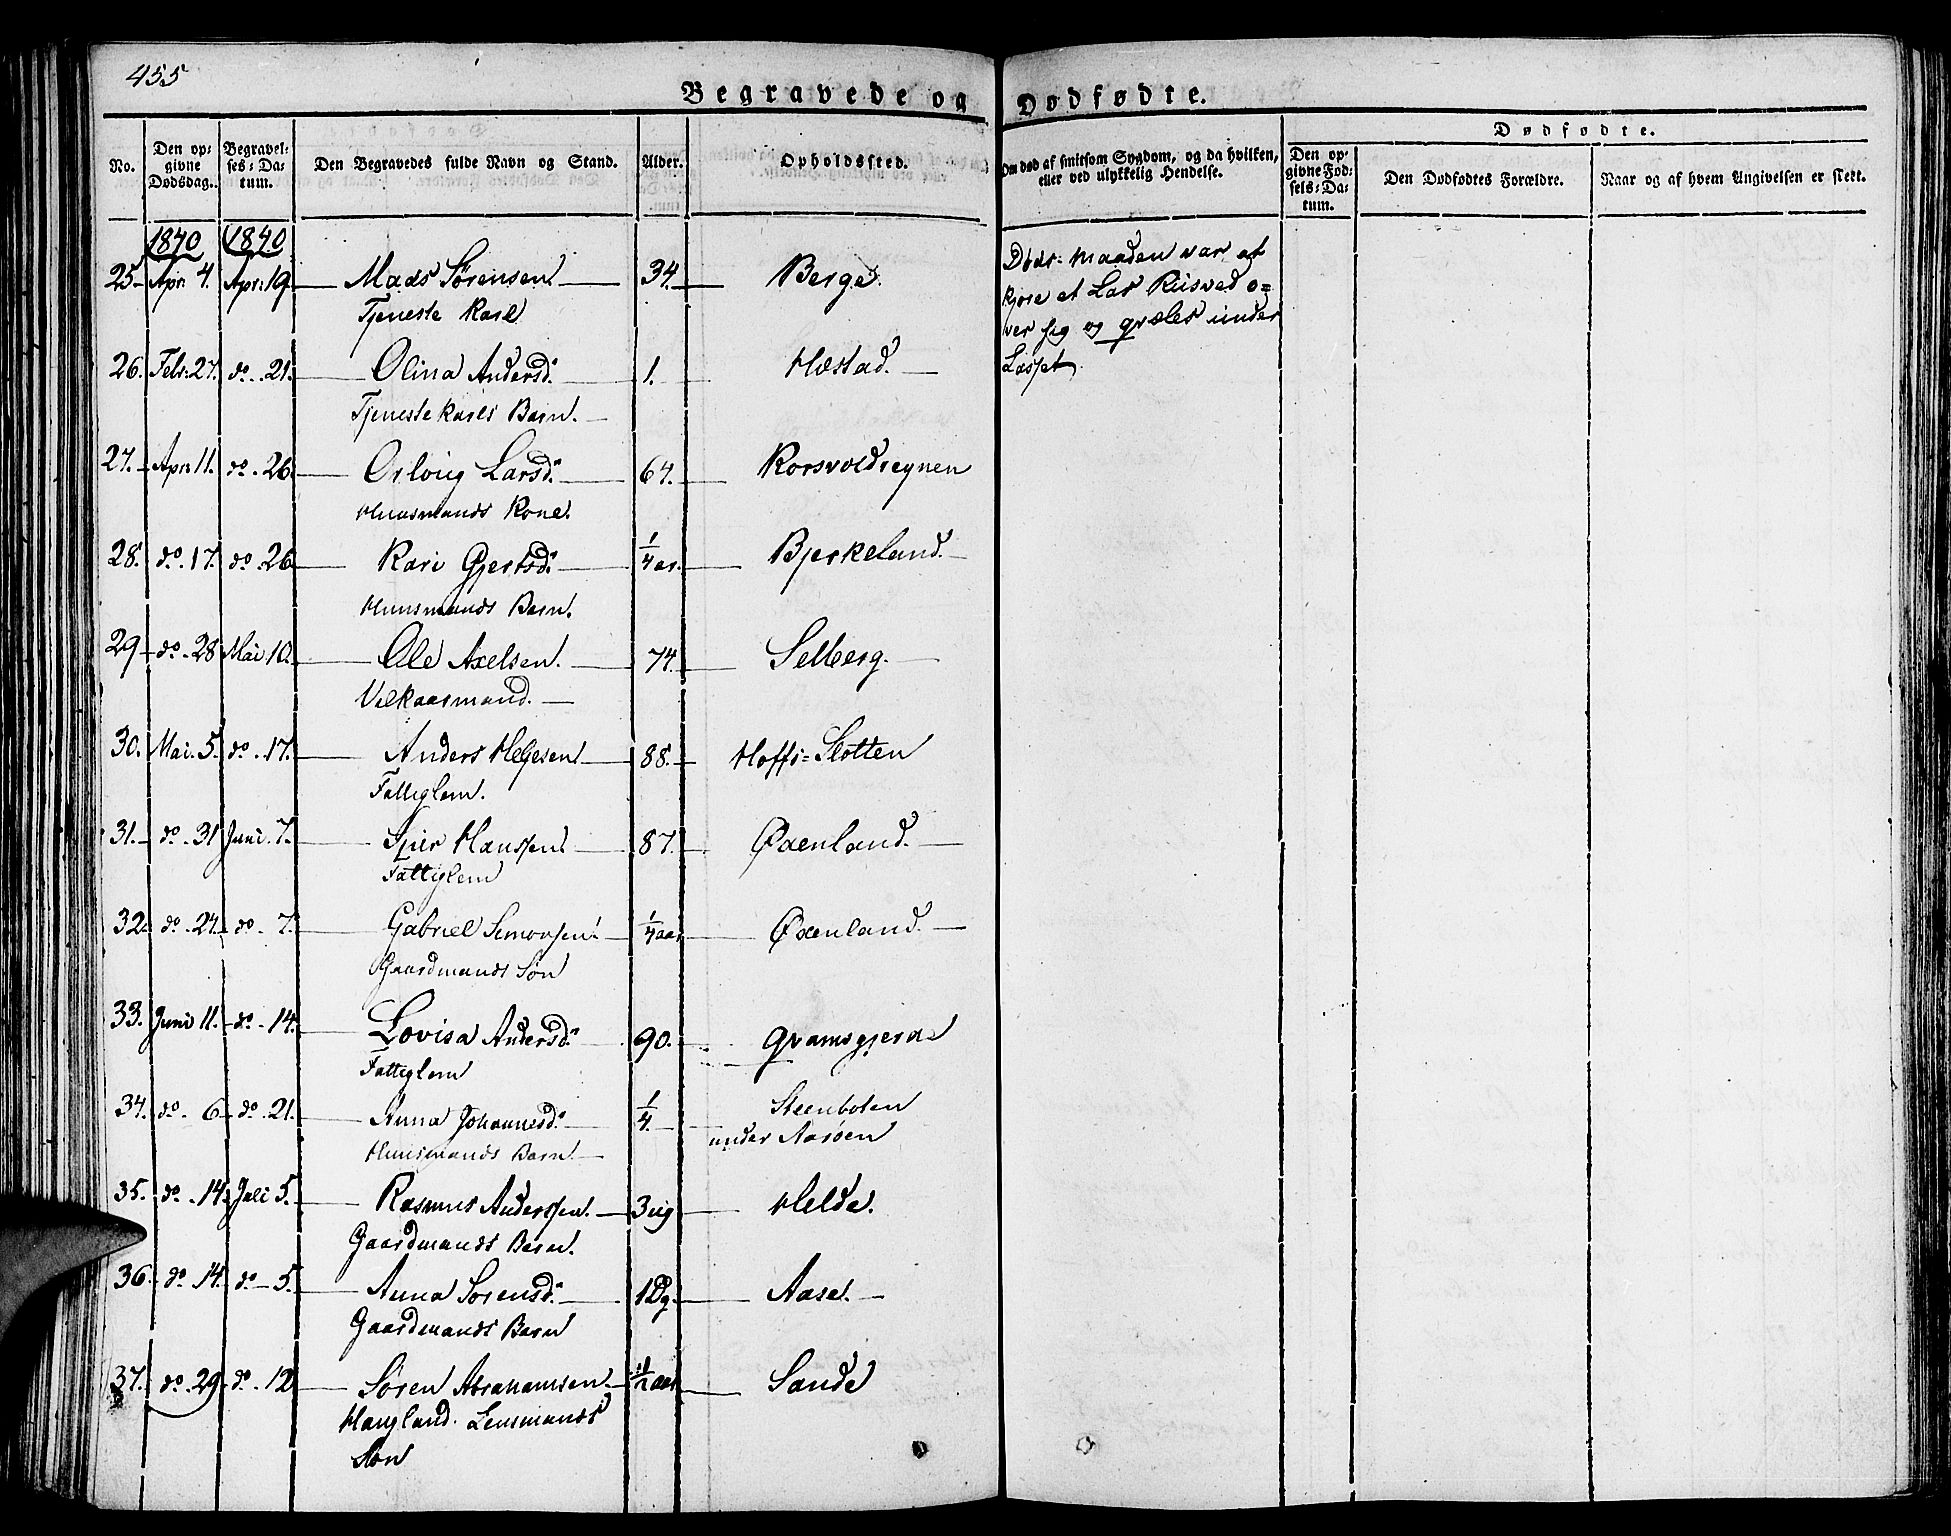 455
Begravede og Dødfødte.
No. Den opgivne Dødsdag. Begravelses-Datum. Den Begravedes fulde Navn og Stand. Alder. Opholdssted. Om død af smitsom Sygdom, og da hvilken, eller ved ulykkelig Hendelse. Dødfødte. Den opgivne Fødsels-Datum. Den Dødfødtes Forældre. Naar og af hvem Angivelsen er skeet.
1840 1840
25 Apr: 4. Apr: 19. Mads Sørensen 34. Berge. Døds-maaden var at
Tjeneste Karl kjøre et Las Riisved o=
ver sig og qvæles under
26. Febr: 27. do. 21. Olina Andersd. 1. Hæstad. Lasset
Tjeneste Karls Barn.
27. Apr: 11. do. 26. Larsd. 64. Korsvoldsegnen
Huusmands Kone.
28. do. 17. do. 26 Kari Gjertsd. 1/4 aar. Bjerkeland.
Huusmands Barn.
29 do. 28 Mai 10. Ole Axelsen. 74. Selberg.
Velkaarsmand.
30. Mai. 5. do. 17. Anders Helgesen 88. Hoffs=Slotten
Fattiglem.
31. do. 31 Juni. 7. Hanssen 87. Øxenland.
Fattiglem
32. do. 24. do. 7. Gabriel Simonsen 1/4 aar Øxenland.
Gaardmands Søn
33. Juni 11. do. 14. Lovisa Andersd. 90. Qvamsgjerde
Fattiglem
34. do. 6 do. 21. Anna Johannesd. 1/4. Steenboten
Huusmands Barn under Aasøen
35. do. 14. Juli 5. Rasmus Anderssen. 3 ug Helde.
Gaardmands Barn.
36. do. 14. do. 5. Anna Sørensd. 1 Dg. Aase.
Gaardmands Barn
37. do. 29 do. 12 Søren Abrahamsen 1/2 aar Sande
Haugland. Lensmands
Søn